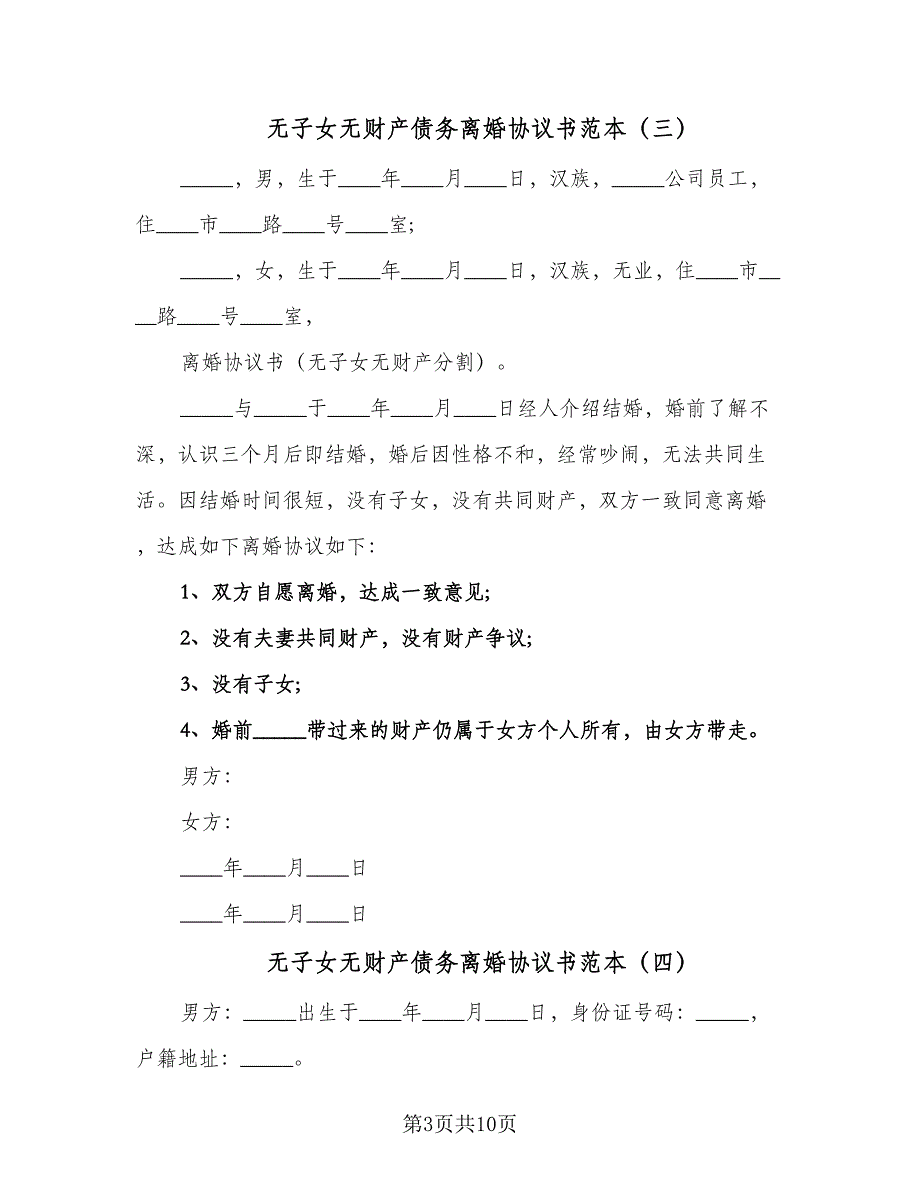 无子女无财产债务离婚协议书范本（三）
_____，男，生于____年____月____日，汉族，_____公司员工，
住____市____路____号____室;
_____，女，生于____年____月____日，汉族，无业，住____市__
__路____号____室，
离婚协议书（无子女无财产分割）。
_____与_____于____年____月____日经人介绍结婚，婚前了解不
深，认识三个月后即结婚，婚后因性格不和，经常吵闹，无法共同生
活。因结婚时间很短，没有子女，没有共同财产，双方一致同意离婚
，达成如下离婚协议如下：
1、双方自愿离婚，达成一致意见;
2、没有夫妻共同财产，没有财产争议;
3、没有子女;
4、婚前_____带过来的财产仍属于女方个人所有，由女方带走。
男方：
女方：
____年____月____日
____年____月____日
无子女无财产债务离婚协议书范本（四）
男方：_____出生于____年____月____日，身份证号码：_____，
户籍地址：_____。
第3页共10页